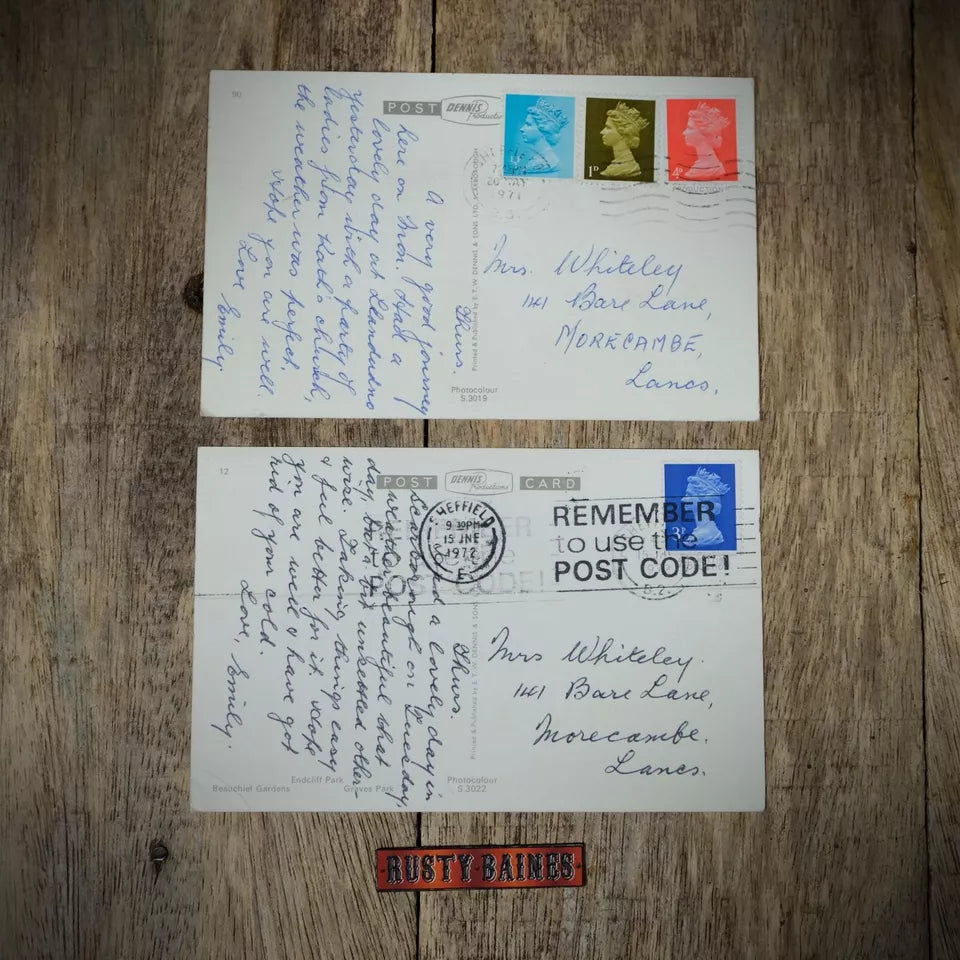 90
POST DENNIS
Productio
Thurs.
A very good journey
here on Mon. Had a
lovely day at Llandudno
yesterday with a party of
ladies from Kath's church,
the weather was perfect.
Hope you are well.
Love Emily
Printed & Published by E.T.W. DENNIS & SONS LTD., SCARBOROUGH
Photocolour
S.3019
1D
4D
26 MAY
1971
Mrs. Whiteley
141 Bare Lane,
MORECAMBE,
Lancs,
12
POST DENNIS CARD
Productions
SHEFFIELD
9 30PM
15 JNE
1972
E
REMEMBER
to use the
POST CODE!
Thurs.
Had a lovely day in
Scarborough on Tuesday,
weather beautiful that
day, but a bit unsettled other-
wise. Taking things easy
& feel better for it. Hope
you are well & have got
rid of your cold.
Love, Emily.
Printed & Published by E.T.W. DENNIS & SONS
Endcliff Park
Beauchief Gardens
Graves Park
Photocolour
S.3022
Mrs Whiteley.
141 Bare Lane,
Morecambe.
Lancs.
RUSTY BAINES